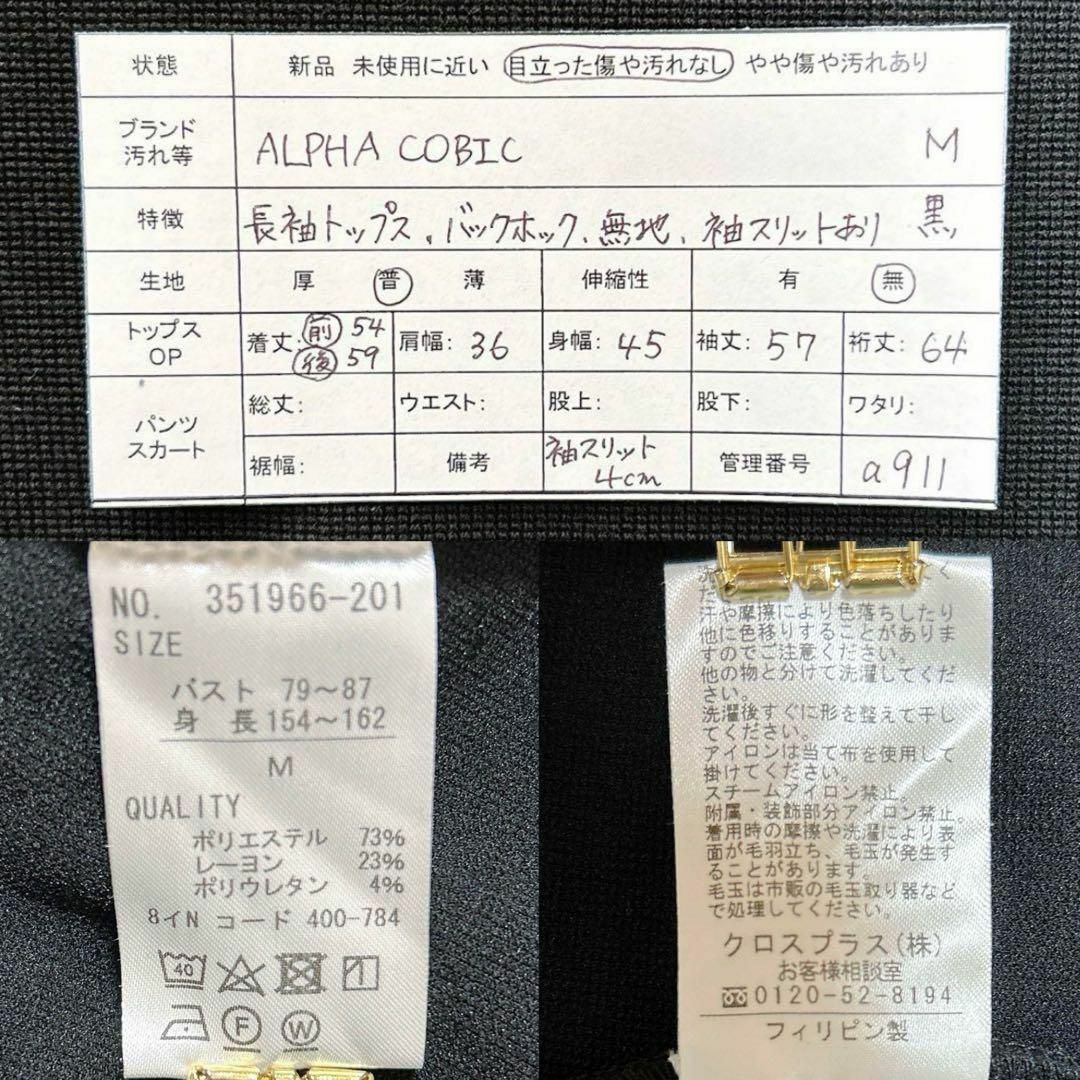 状態 新品 未使用に近い 目立った傷や汚れなし やや傷や汚れあり
ブランド
汚れ等 ALPHA COBIC M
特徴 長袖トップス、バックホック、無地、袖スリットあり 黒
生地 厚 普 薄 伸縮性 有 無
トップス
OP
着丈: 前 54
後 59
肩幅: 36 身幅: 45 袖丈: 57 裄丈: 64
パンツ
スカート
総丈: ウエスト: 股上: 股下: ワタリ:
裾幅: 備考 袖スリット
4cm
管理番号 a911
NO. 351966-201
SIZE
バスト 79〜87
身 長 154〜162
M
QUALITY
ポリエステル 73%
レーヨン 23%
ポリウレタン 4%
8イN コード 400-784
40
F
W
汗や摩擦により色落ちしたり
他に色移りすることがありま
すのでご注意ください。
他の物と分けて洗濯してくだ
さい。
洗濯後すぐに形を整えて干し
てください。
アイロンは当て布を使用して
掛けてください。
スチームアイロン禁止。
附属・装飾部分アイロン禁止。
着用時の摩擦や洗濯により表
面が毛羽立ち、毛玉が発生す
ることがあります。
毛玉は市販の毛玉取り器など
で処理してください。
クロスプラス(株)
お客様相談室
0120-52-8194
フィリピン製